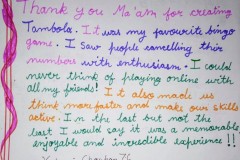 Thank you Ma'am for creating
Tambola. It was my favourite bingo
game. I saw people cancelling their
numbers with enthusiasm. I could
never think of playing online with
all my friends! It also made us
think more faster and make our skills
active. In the last but not the
least I would say it was a memorable,
enjoyable and incredible experience!!